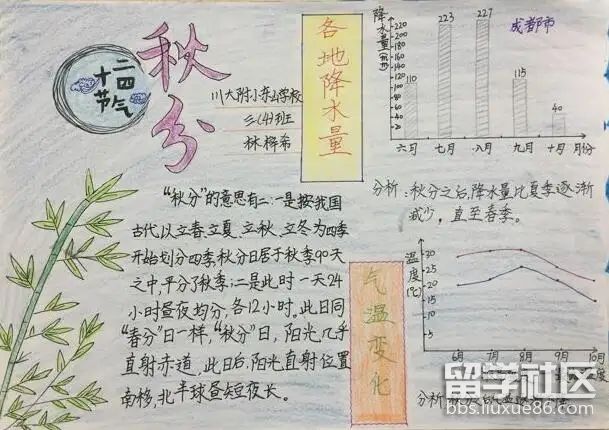 二四
十
节气
秋分
川大附小东山学校
三(4)班
林桦希
各地降水量
降水量(毫米)
220
200
180
160
140
120
100
80
60
40
20
110
223
227
115
40
六月 七月 八月 九月 十月 月份
成都市
分析:秋分之后,降水量比夏季逐渐
减少,直至春季。
"秋分"的意思有二:一是按我国
古代以立春、立夏、立秋、立冬为四季
开始划分四季,秋分日居于秋季90天
之中,平分了秋季;二是此时一天24
小时昼夜均分,各12小时。此日同
"春分"日一样,"秋分"日,阳光几乎
直射赤道,此日后,阳光直射位置
南移,北半球昼短夜长。
气温变化
温度(℃)
30
25
20
15
10
6月 7月 8月 9月 10月
分析:秋分
留学社区
bbs.liuxue86.com